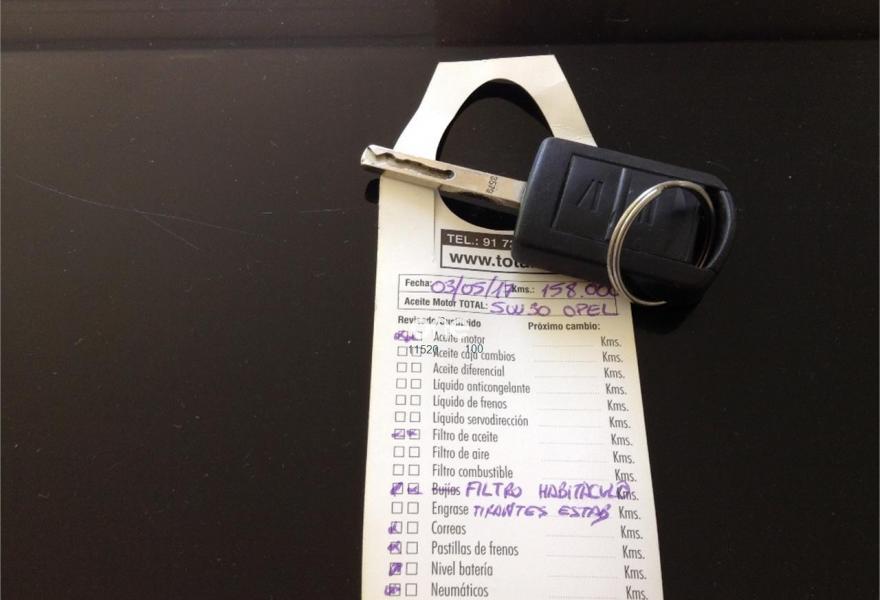 3579
TEL.: 91 7
www.tota
Fecha: 03/05/17 kms.: 158.000
Aceite Motor TOTAL: 5W30 OPEL
Revisado/Sustituido Próximo cambio:
Aceite motor Kms.
11520 100
Aceite caja cambios Kms.
Aceite diferencial Kms.
Líquido anticongelante Kms.
Líquido de frenos Kms.
Líquido servodirección Kms.
Filtro de aceite Kms.
Filtro de aire Kms.
Filtro combustible Kms.
Bujías FILTRO HABITACULO Kms.
Engrase TIRANTES ESTAB Kms.
Correas Kms.
Pastillas de frenos Kms.
Nivel batería Kms.
Neumáticos Kms.